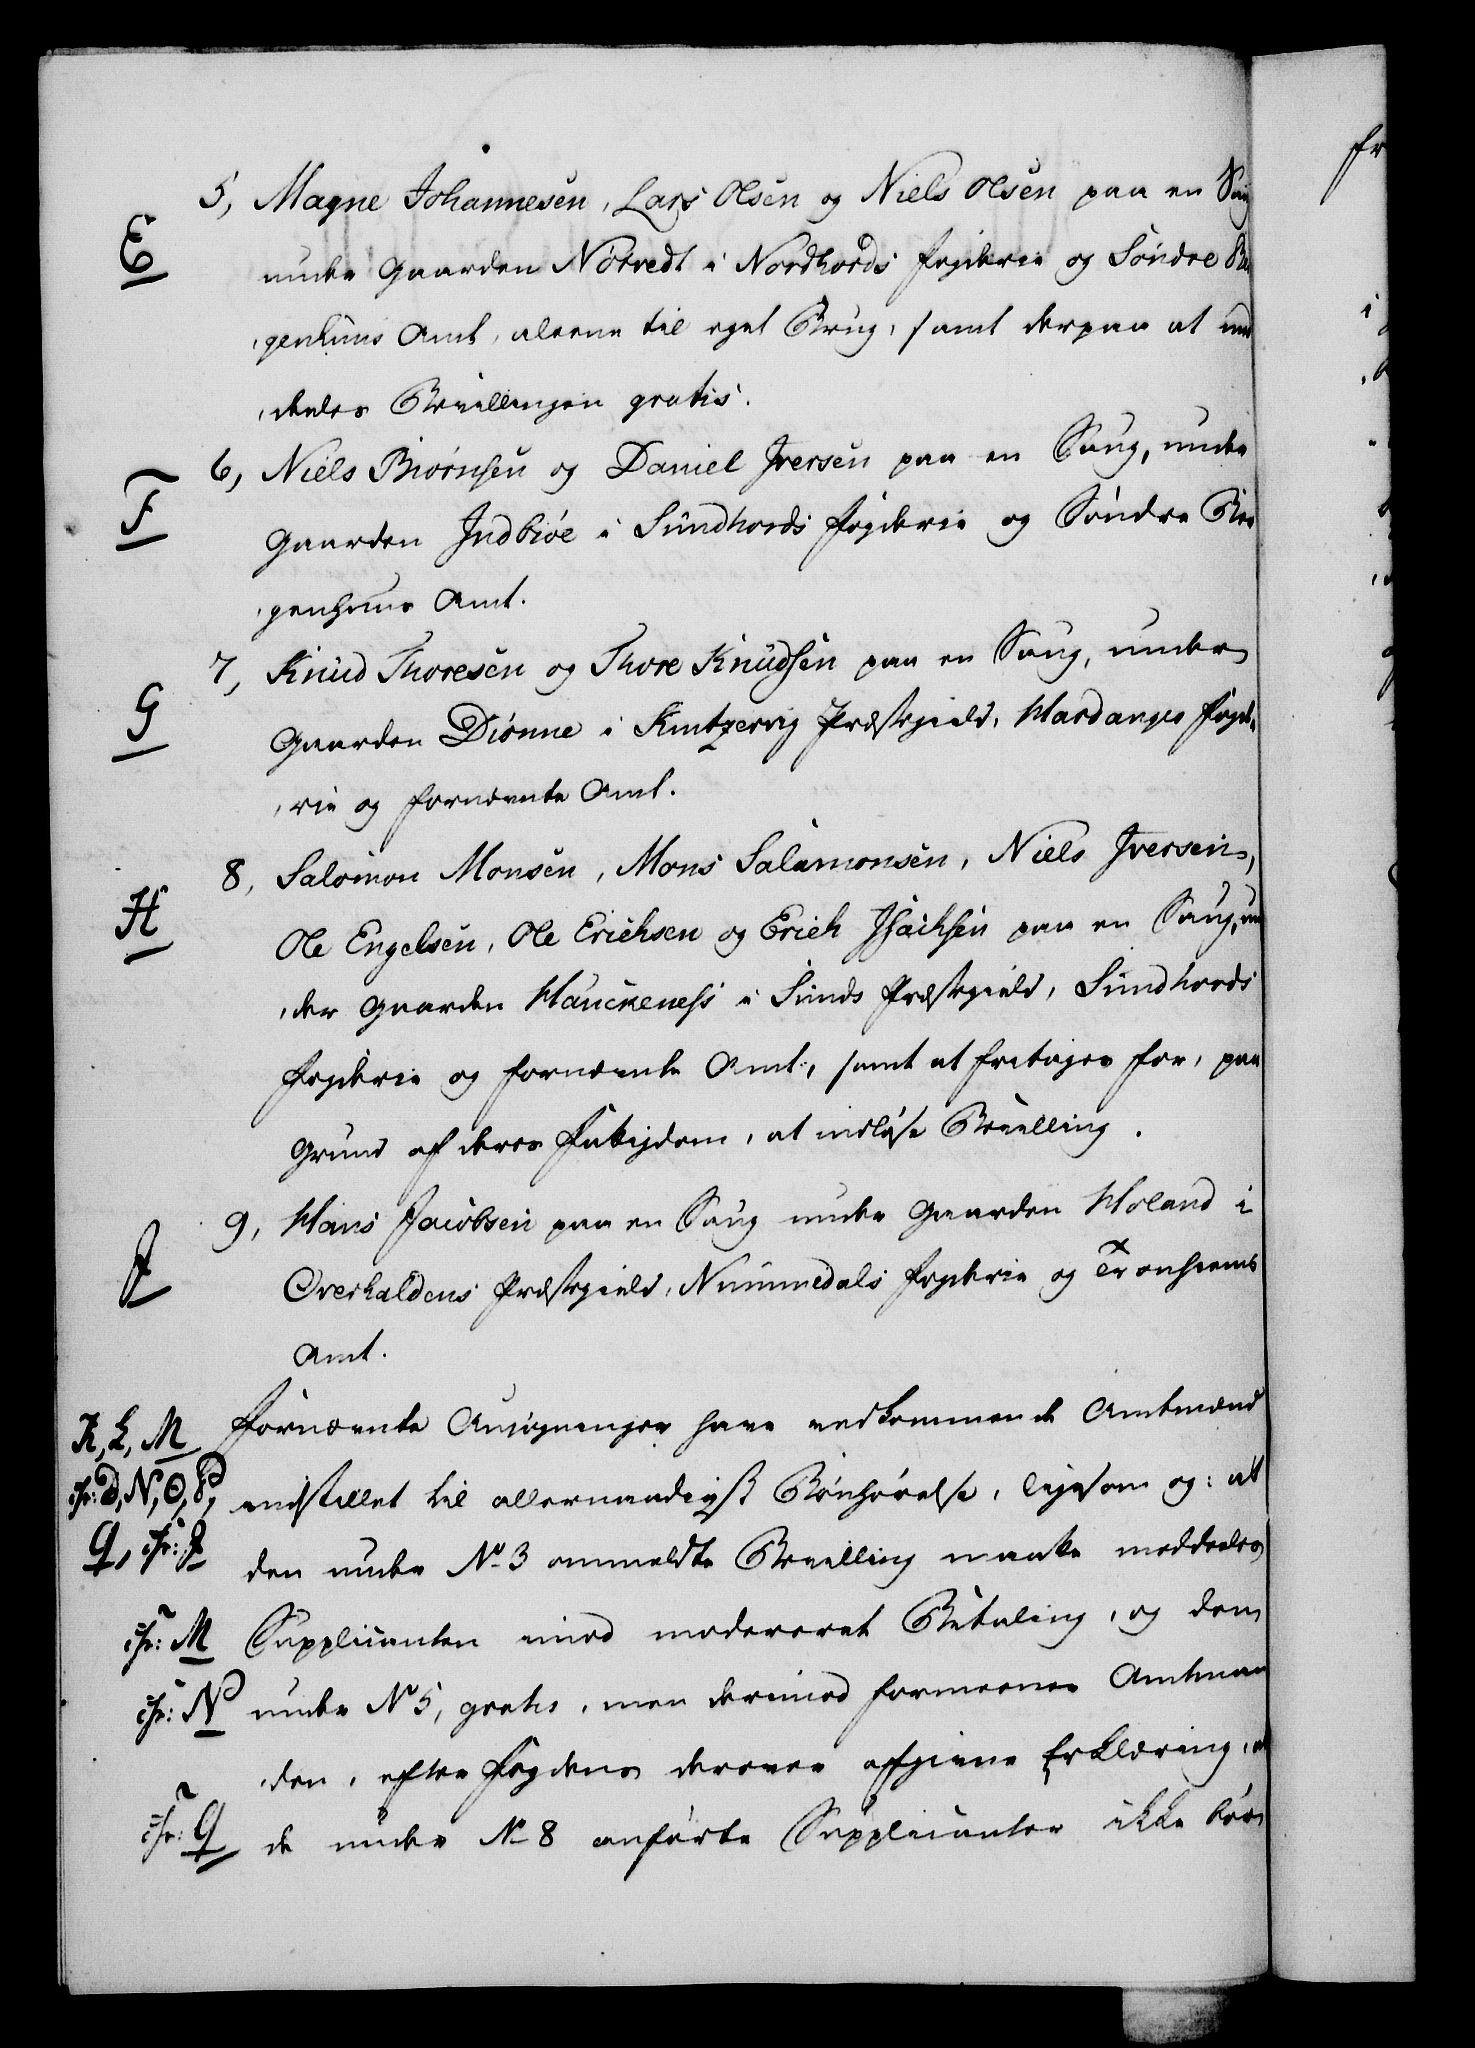 5, Magne Johannesen, Lars Olsen og Niels Olsen paa en Saug
E
under Gaarden Nötvedt i Nordhords Fogderie og Söndre Ber
genhuus Amt, alene til eget Brug, samt derpaa at med
deeles Bevillingen gratis.
6, Niels Biörnsen og Daniel Iversen paa en Saug, under
F
Gaarden Indbiöe i Sundhords Fogderie og Söndre Ber
genhuus Amt.
7, Knud Thoresen og Thore Knudsen paa en Saug, under
G
Gaarden Diönne i Kintzervig Præstegield, Hardanger Fogde
rie og fornævnte Amt.
8, Salomon Monsen, Mons Salamonsen, Niels Iversen,
H
Ole Engelsen, Ole Erichsen og Erich Isachsen paa en Saug, un
der Gaarden Hauckeness i Sunds Præstegield, Sundhords
Fogderie og fornævnte Amt, samt at fritages for, paa
Grund af deres Fattigdom, at indløse Bevilling.
9, Hans Jacobsen paa en Saug under Gaarden Höland i
J
Overhaldens Præstegield, Nummedals Fogderie og Tronhiems
Amt.
K, L, M
Fornævnte Ansögninger have vedkommende Amtmænd
cfr: D, N, O, P,
indstillet til allernaadigst Bönhörelse, ligesom og: at
Q, cfr: J
den under No 3 ommeldte Bevilling maatte meddeeles
cfr: M
Supplicanten imod modereret Betaling, og den
cfr: N
under No 5, gratis, men derimod formeener Amtman
den, efter Fogdens derover afgivne Erklæring, at
cfr: Q
de under No 8 anförte Supplicanter ikke bör